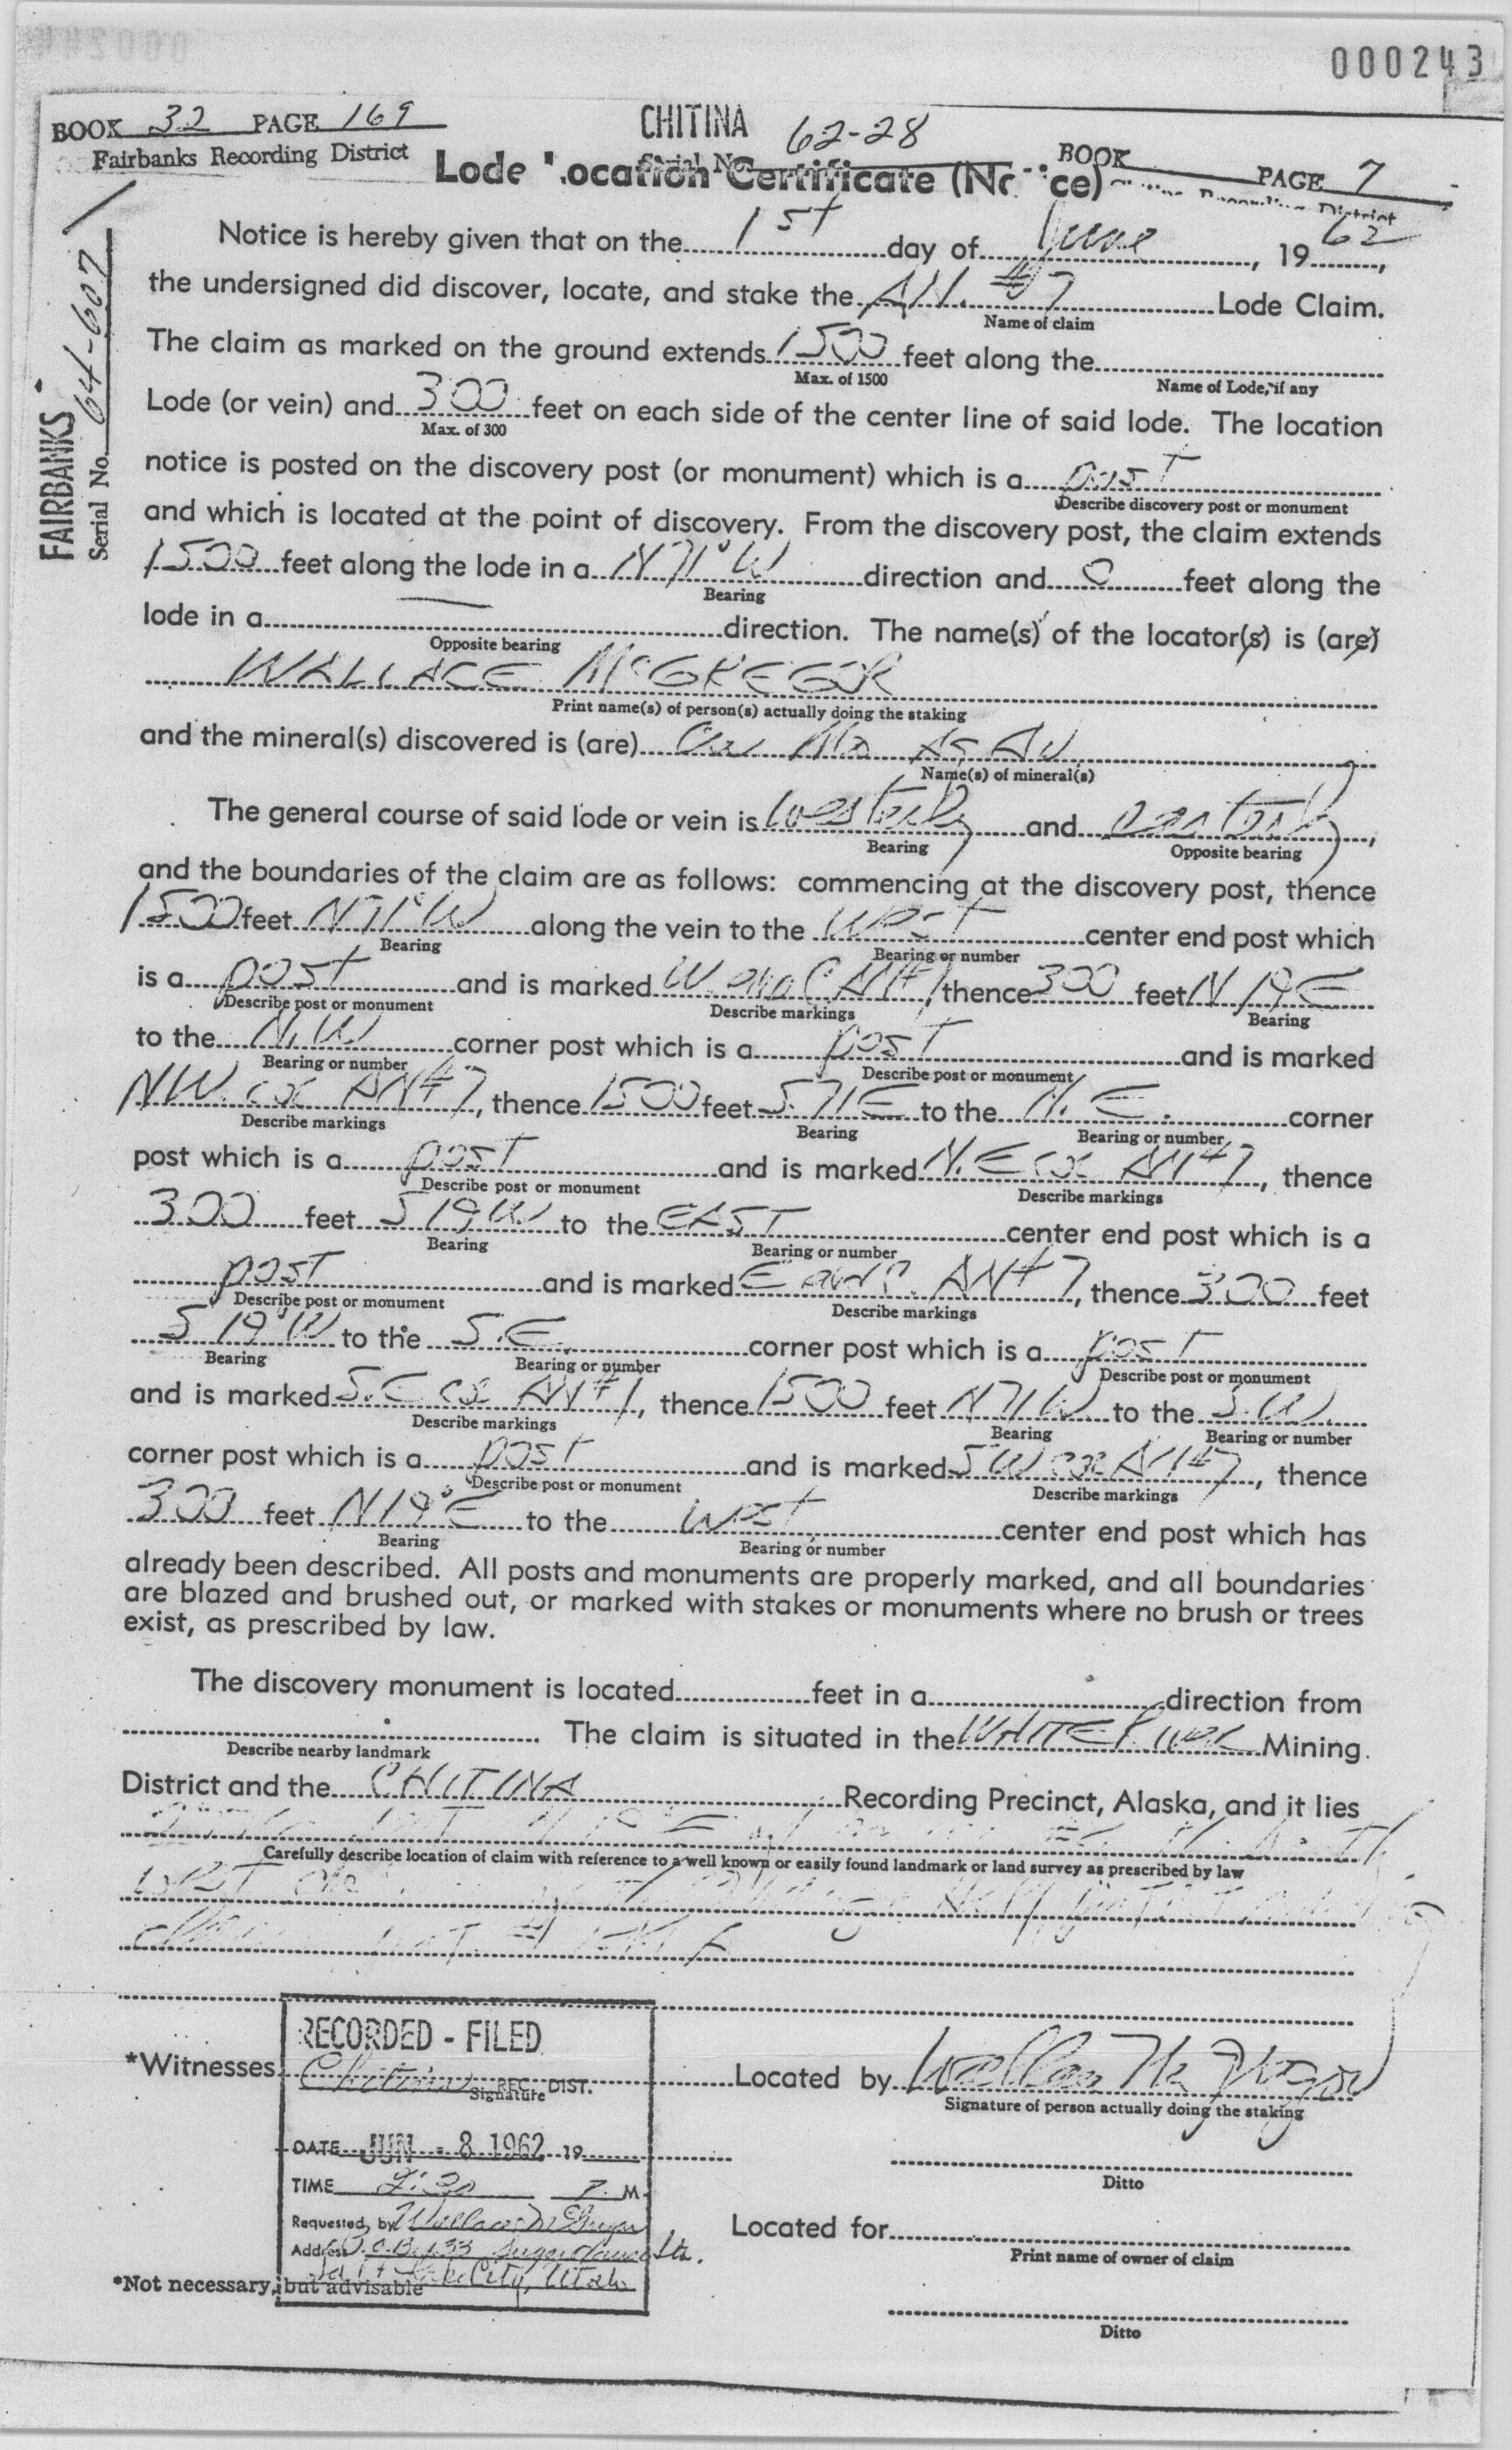 000243
BOOK 32 PAGE 169
Fairbanks Recording District
CHITINA
Serial No. 62-28
BOOK PAGE 7
Recording District
Lode Location Certificate (Notice)
FAIRBANKS
Serial No. 64-607
Notice is hereby given that on the 1st day of June, 1962,
the undersigned did discover, locate, and stake the AN. #7 Lode Claim.
Name of claim
The claim as marked on the ground extends 1500 feet along the
Max. of 1500 Name of Lode, if any
Lode (or vein) and 300 feet on each side of the center line of said lode. The location
Max. of 300
notice is posted on the discovery post (or monument) which is a post
Describe discovery post or monument
and which is located at the point of discovery. From the discovery post, the claim extends
1500 feet along the lode in a N71°W direction and 0 feet along the
Bearing
lode in a direction. The name(s) of the locator(s) is (are)
Opposite bearing
WALLACE McGREGOR
Print name(s) of person(s) actually doing the staking
and the mineral(s) discovered is (are) Cu Mo Ag Au
Name(s) of mineral(s)
The general course of said lode or vein is westerly and easterly,
Bearing Opposite bearing
and the boundaries of the claim are as follows: commencing at the discovery post, thence
1500 feet N71°W along the vein to the west center end post which
Bearing Bearing or number
is a post and is marked W. end C AN#7, thence 300 feet N 19 E
Describe post or monument Describe markings Bearing
to the N.W corner post which is a post and is marked
Bearing or number Describe post or monument
NW. cor AN#7, thence 1500 feet S.71E to the N.E. corner
Describe markings Bearing Bearing or number
post which is a post and is marked N.E cor AN#7, thence
Describe post or monument Describe markings
300 feet S19W to the EAST center end post which is a
Bearing Bearing or number
post and is marked E end C. AN#7, thence 300 feet
Describe post or monument Describe markings
S 19°W to the S.E. corner post which is a post
Bearing Bearing or number Describe post or monument
and is marked S.E cor AN#7, thence 1500 feet N71W to the S.W.
Describe markings Bearing Bearing or number
corner post which is a post and is marked SW cor AN#7, thence
Describe post or monument Describe markings
300 feet N19°E to the west center end post which has
Bearing Bearing or number
already been described. All posts and monuments are properly marked, and all boundaries
are blazed and brushed out, or marked with stakes or monuments where no brush or trees
exist, as prescribed by law.
The discovery monument is located feet in a direction from
. The claim is situated in the WHITE River Mining
Describe nearby landmark
District and the CHITINA Recording Precinct, Alaska, and it lies
Carefully describe location of claim with reference to a well known or easily found landmark or land survey as prescribed by law
west
RECORDED - FILED
*Witnesses Chitina REC. DIST. Located by Wallace McGregor
Signature Signature of person actually doing the staking
DATE JUN - 8 1962 19
Ditto
TIME 7:30 P. M.
Requested by Wallace McGregor
Located for
Address P.O.B. 133 Sugarhouse Sta.
Print name of owner of claim
Salt Lake City, Utah
*Not necessary, but advisable
Ditto